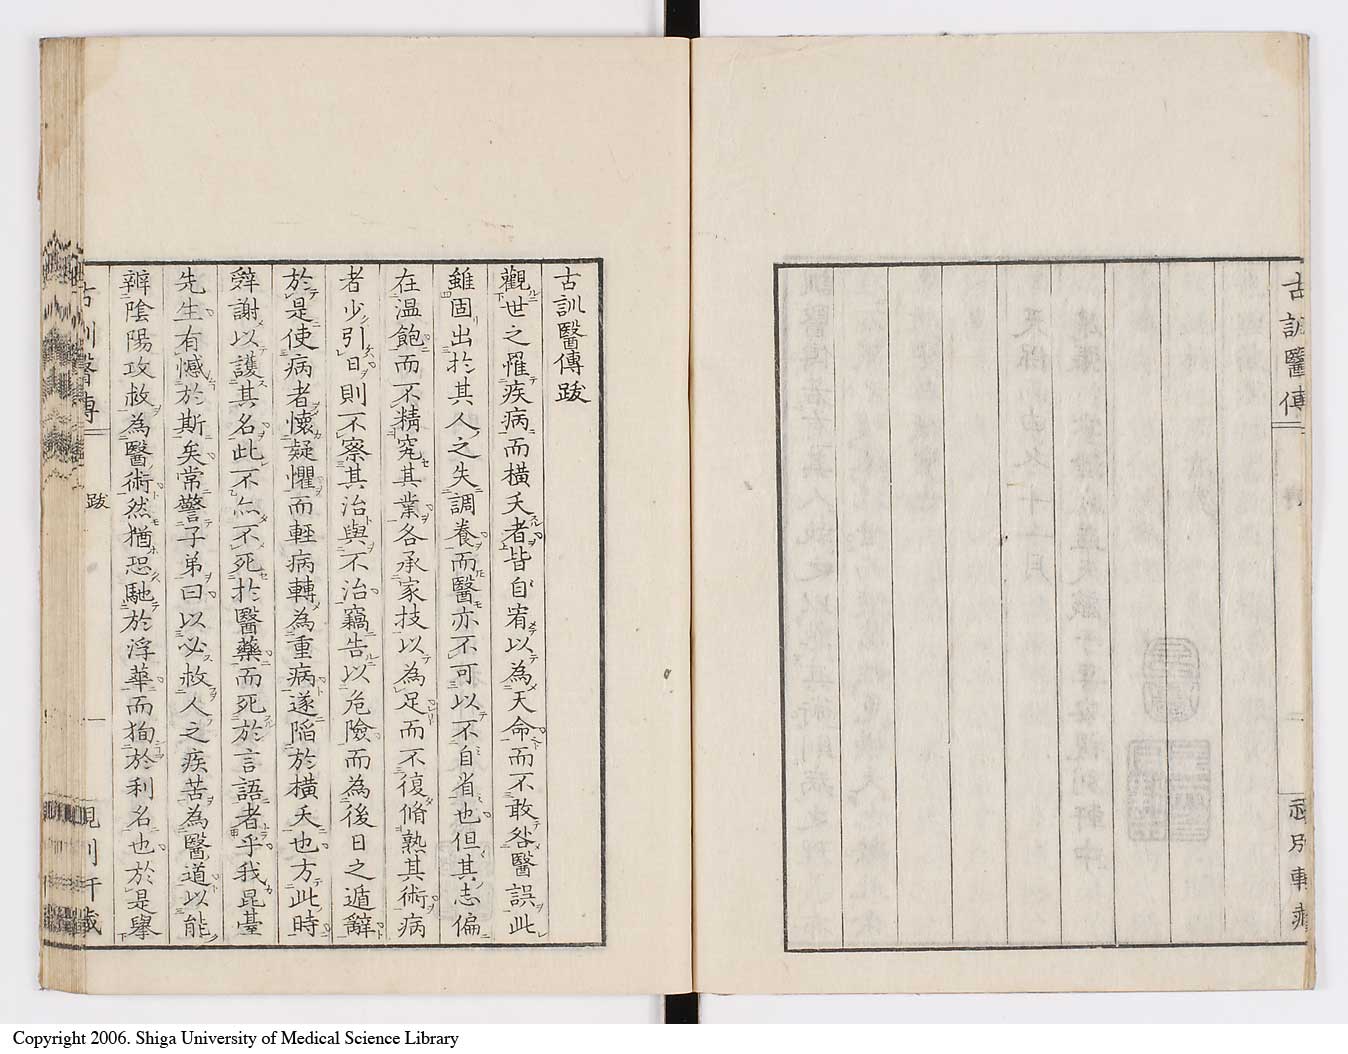 古訓醫傳
視別軒藏
古訓醫傳跋
觀世之罹疾病而橫夭者皆自宥以為天命而不敢咎醫誤此
雖固出於其人之失調養而醫亦不可以不自省也但其志偏
在温飽而不精究其業各承家技以為足而不復脩熟其術病
者少引日則不察其治與不治竊告以危險而為後日之遁辭
於是使病者懷疑懼而輕病轉為重病遂陷於橫夭也方此時
辤謝以護其名此不啻不死於醫藥而死於言語者乎我昆臺
先生有憾於斯矣常警子弟曰以必救人之疾苦為醫道以能
辯陰陽攻救為醫術然猶恐馳於浮華而拘於利名也於是擧
古訓醫傳
跋
一
視別軒藏
Copyright 2006. Shiga University of Medical Science Library